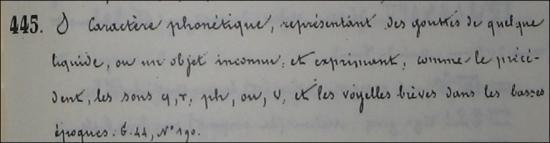 445. Caractère phonétique, représentant des gouttes de quelque
liquide, ou un objet inconnu, et exprimant, comme le précé-
dent, les sons q, r, ph, ou, U, et les voyelles brèves dans les basses
époques. G. 44, N° 190.